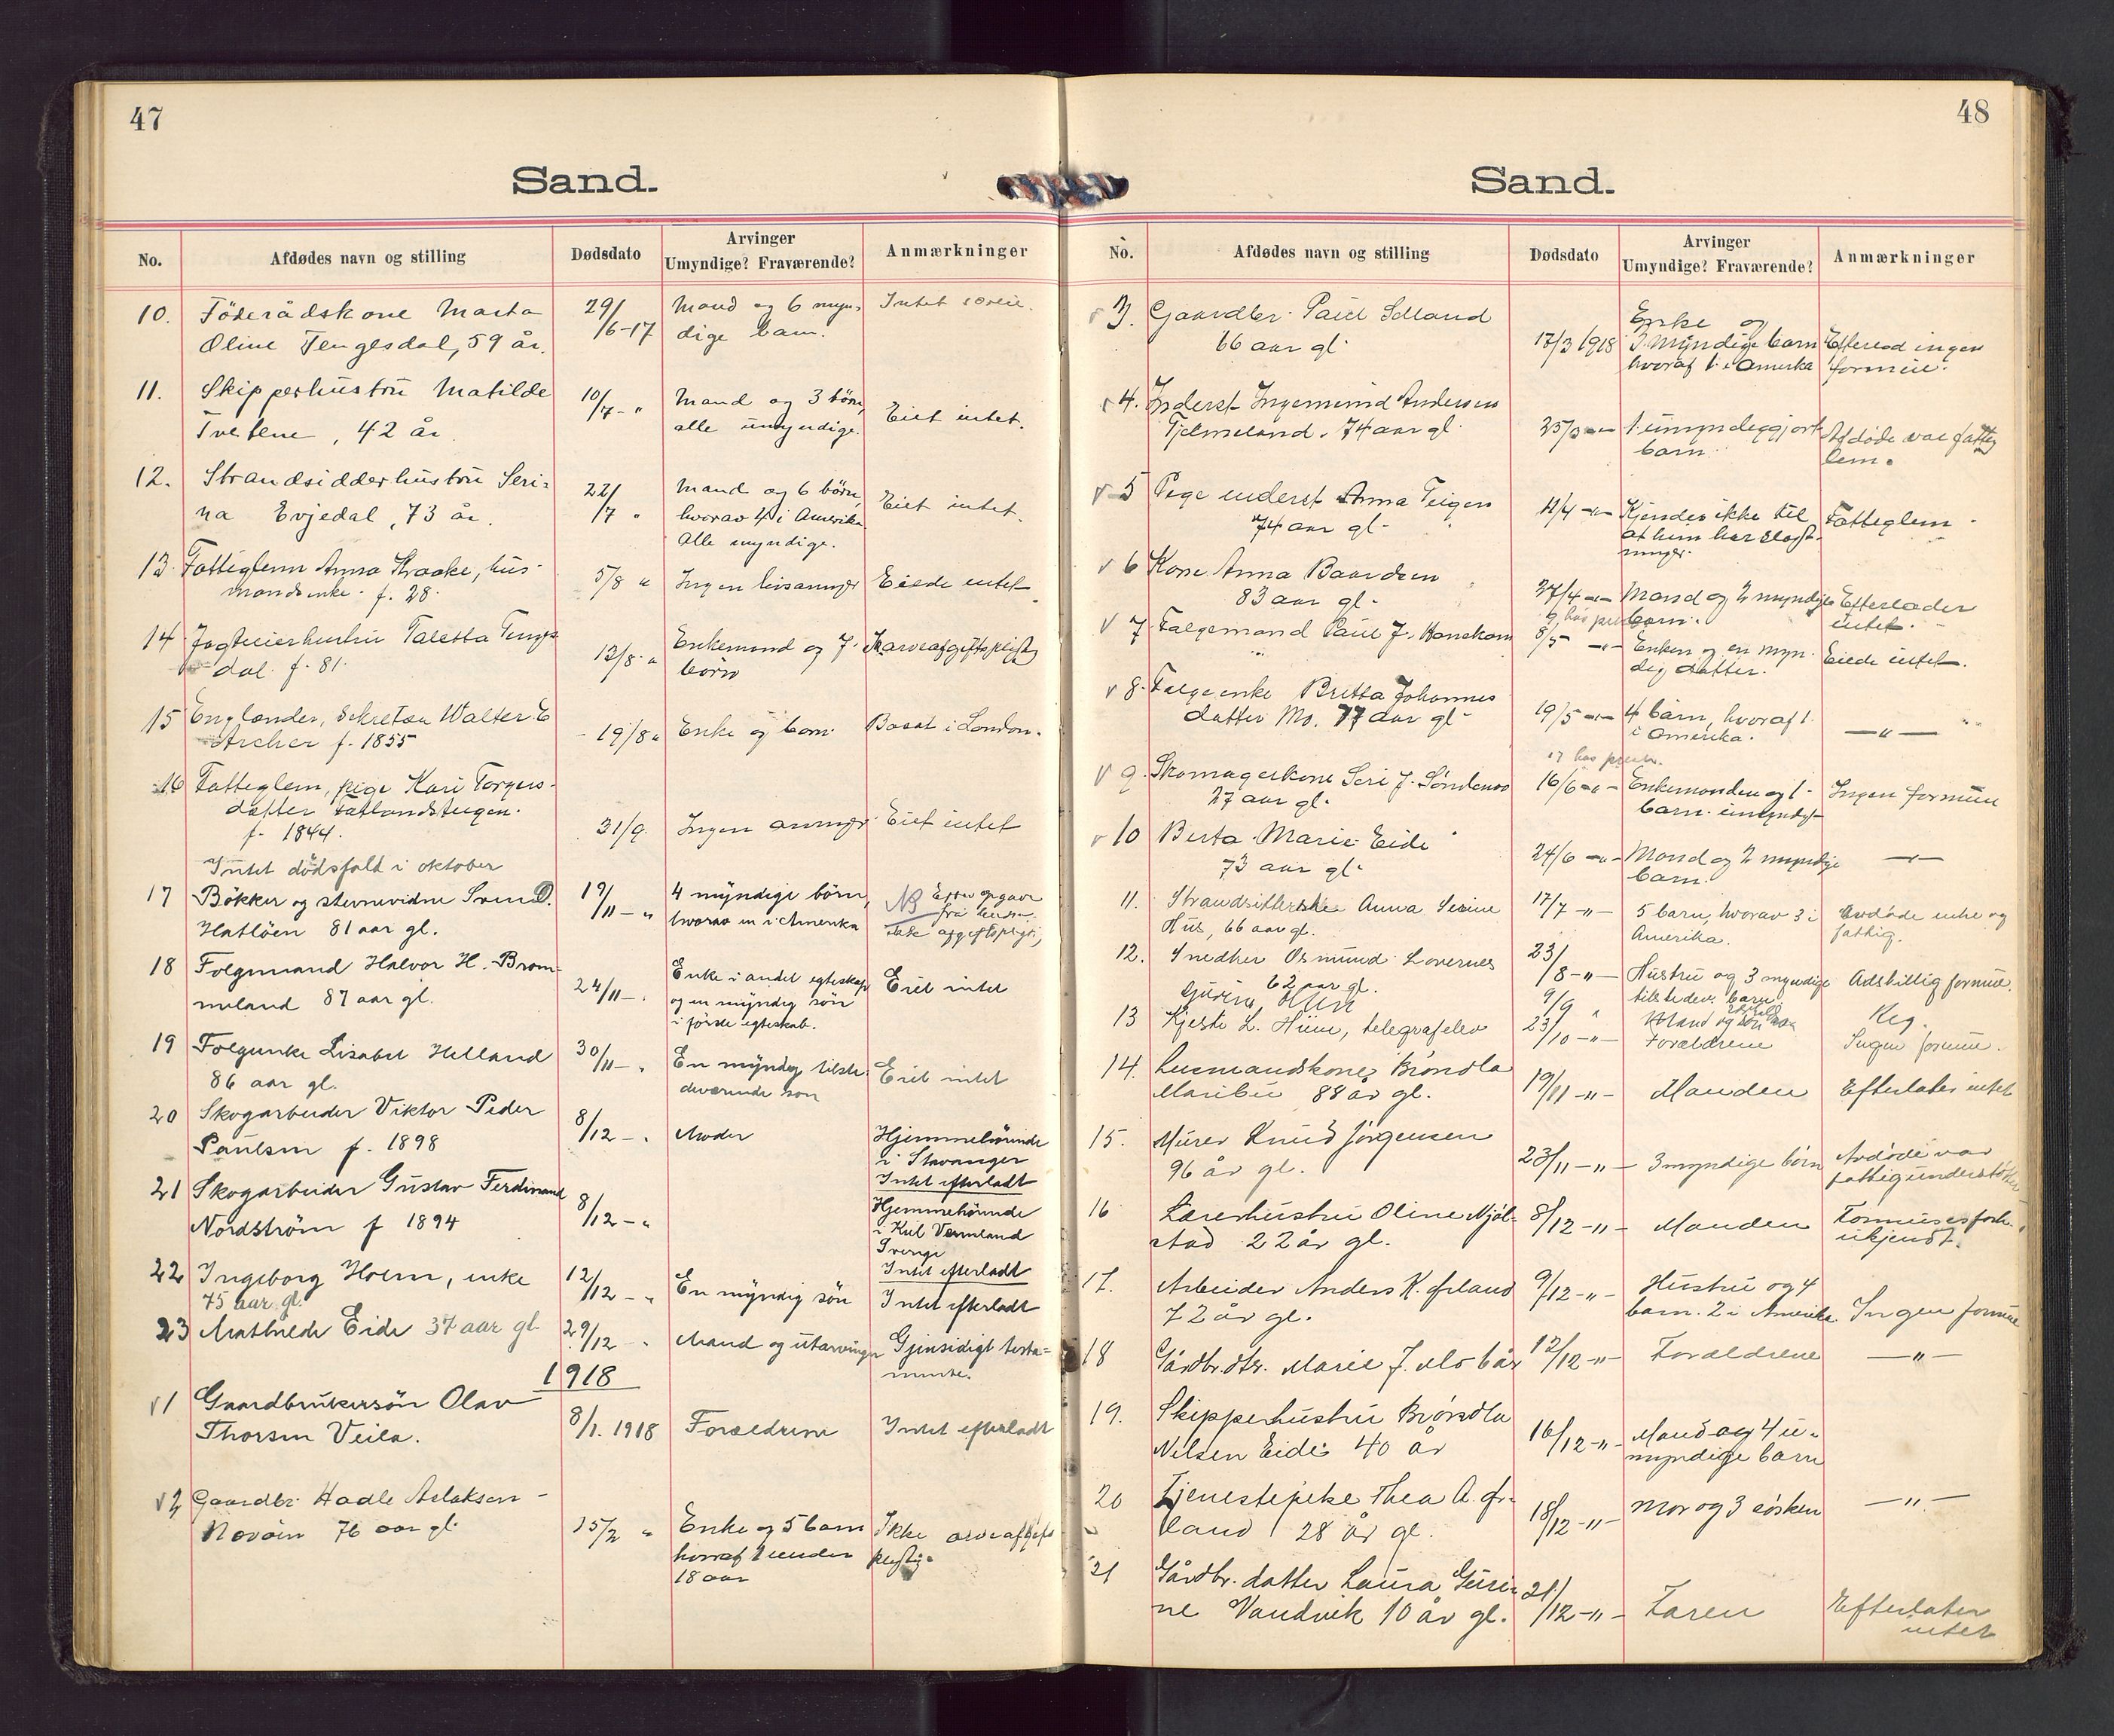 47
Sand.
No. Afdødes navn og stilling Dødsdato Arvinger Umyndige? Fraværende? Anmærkninger
10. Föderådskone Marta 29/6-17 Mand og 6 myn- Intet
Oline Tengesdal, 59 år. dige barn.
11. Skipperhustru Matilde 10/7 - " Mand og 3 börn, Eiet intet.
Tvetene, 42 år. alle umyndige.
12. Strandsidderhustru Seri- 22/7 " Mand og 6 börn, Eiet intet.
na Evjedal, 73 år. hvorav 4 i Amerika
Alle myndige.
13. Fattiglem Anna Kraake, hus- 5/8 " Ingen livsarvinger Eiede intet
mandsenke. f. 28.
14 Jagteierhustru Taletta Tengs- 12/8 " Enkemand og 7 arveafgiftspligtig
dal. f. 81. börn
15 Englænder, sekretær Walter E 19/8 " Enke og barn. Bosat i London.
Archer f. 1855
16 Fatteglem, pige Kari Torgers- 31/9. Ingen arvinger Eiet intet
datter Fatlandsteigen.
f. 1844.
Intet dödsfald i oktober
17 Bökker og stevnevidne Svend D. 19/11 - " 4 myndige börn, NB Efter opgave
Hatlöen 81 aar gl. hvorav en i Amerika fra
18 Folgemand Halvor H. Brom- 24/11 - " Enke i andet egteskap Eiet intet
meland 87 aar gl. og en myndig sön
i förste egteskab.
19 Folgenke Lisabet Helland 30/11 - " En myndig tilste- Eiet intet
86 aar gl. deværende sön
20 Skogarbeider Viktor Peder 8/12 - " Moder Hjemmehörende
Paulsen f. 1898 i Stavanger
Intet efterladt
21 Skogarbeider Gustav Ferdinand 8/12 - " Hjemmehörende
Nordström f 1894 i Kil Vermland
Sverige
Intet efterladt
22 Ingeborg Holm, enke 12/12 - " En myndig sön Intet efterladt
75 aar gl.
23 Mathilde Eide 37 aar gl. 29/12 - " Mand og utarvinger Gjensidigt testa-
mente.
1918
1 Gaardbrukersön Olav 8/1. 1918 Forældrene Intet efterladt
Thorsen Veila.
2 Gaardbr. Hadle Aslaksen 15/2 " Enke og 5 barn Ikke arveafgifts
76 aar gl. hvoraf 1 under pligtig.
18 aar
48
Sand.
No. Afdødes navn og stilling Dødsdato Arvinger Umyndige? Fraværende? Anmærkninger
3. Gaardbr. Paul 17/3 1918 Enke og
66 aar gl. myndige barn Efterlod ingen
hvoraf 1 i Amerika formue.
4. Inderst Ingemund Andersen 1 umyndiggjort Afdöde var fattig
Tjelmeland. 74 aar gl. barn. lem.
5 Pige inderst Anna Teigen 11/4 -"- Kjendes ikke til Fatteglem
74 aar gl. at hun har slægt-
ninger.
6 Kone Anna Baardsen 27/4 -"- Mand og 2 myndige Efterlader
83 aar gl. barn. intet.
7 Følgemand Paul J. 8/5 -"- Enken og en myn- Eiede intet.
dig datter.
8. Følgeenke Britta Johannes 19/5 -"- 4 barn, hvoraf 1
datter Mo. 77 aar gl. i Amerika. -"-
17 hos presten.
9. Skomagerkone Seri J. Söndenaa 16/6 -"- Enkemanden og 1 Ingen formue
27 aar gl. barn umyndigt
10 Berta Marie Eide 24/6 -"- Mand og 2 myndige -"-
73 aar gl. barn.
11. Strandsitterske Anna Serine 17/7 -"- 5 barn, hvorav 3 i Avdöde enke og
Hus, 66 aar gl. Amerika. fattig.
12. Snedker Osmund Lovernes 23/8 -"- Hustru og 3 myndige Adskillig formue.
62 aar gl. tilstedev. barn.
Gurina Olsen 9/9 " Mand og
13 Kjesti L. Hiim, telegrafelev 23/10 -"- Forældrene Ingen formue.
14. Lusmandskone Bröndla 19/11 -"- Manden Efterlater intet
Maribu 88 år gl.
15. Murer Knud Jörgensen 23/11 -"- 3 myndige börn Avdöde var
96 år gl. fattigunderstöttet
16 Lærerhustru Oline Mjöl- 8/12 -"- Manden Formuesforh.
stad 22 år gl. ukjendt.
17. Arbeider Anders K. Örland 9/12 -"- Hustru og 4
72 år gl. barn. 2 i Amerika Ingen formue
18 Gårdbr.dtr. Marie J. Mo 6 år 12/12 -"- Forældrene -"-
19. Skipperhustru Bröndla 16/12 -"- Mand og 4 u-
Nilsen Eide 40 år myndige barn
20 Tjenestepike Thea A. Ör- 18/12 -"- Mor og 3 sösken -"-
land 28 år gl.
21 Gårdbr. datter Laura Guri- 21/12 -"- Faren Efterlater
ne Vandvik 10 år gl. intet